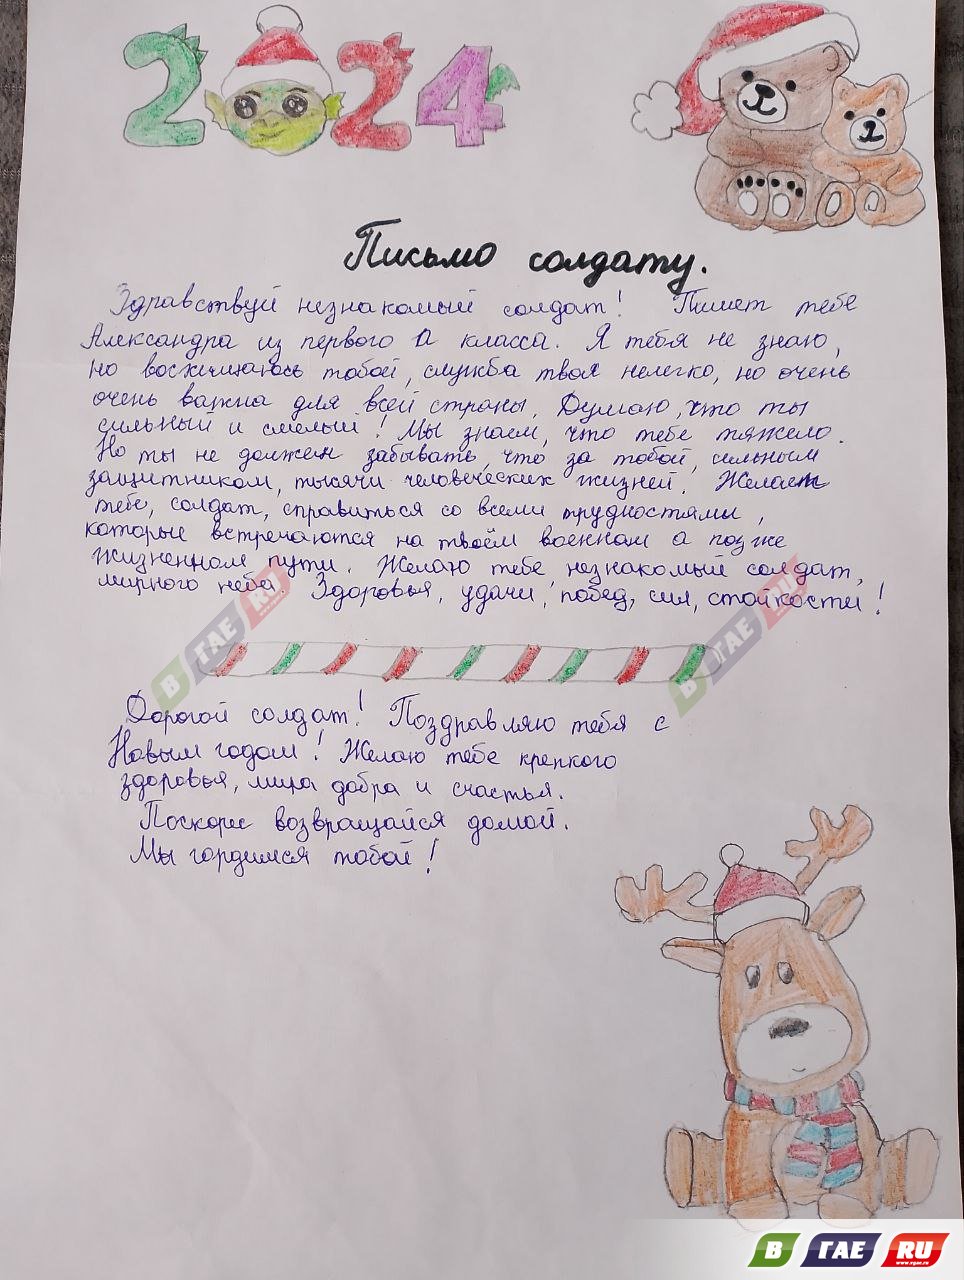 2024
Письмо солдату.
Здравствуй незнакомый солдат! Пишет тебе
Александра из первого а класса. Я тебя не знаю,
но восхищаюсь тобой, служба твоя нелегко, но очень
очень важна для всей страны. Думаю, что ты
сильный и смелый! Мы знаем, что тебе тяжело.
Но ты не должен забывать, что за тобой, сильным
защитником, тысячи человеческих жизней! Желает
тебе, солдат, справиться со всеми трудностями,
которые встречаются на твоём военном а позже
жизненном пути. Желаю тебе незнакомый солдат,
мирного неба. Здоровья, удачи, побед, сил, стойкости!
В ГАЕ RU
В ГАЕ RU
Дорогой солдат! Поздравляю тебя с
Новым годом! Желаю тебе крепкого
здоровья, мира добра и счастья.
Поскорее возвращайся домой.
Мы гордимся тобой!
В ГАЕ RU
www.vgae.ru